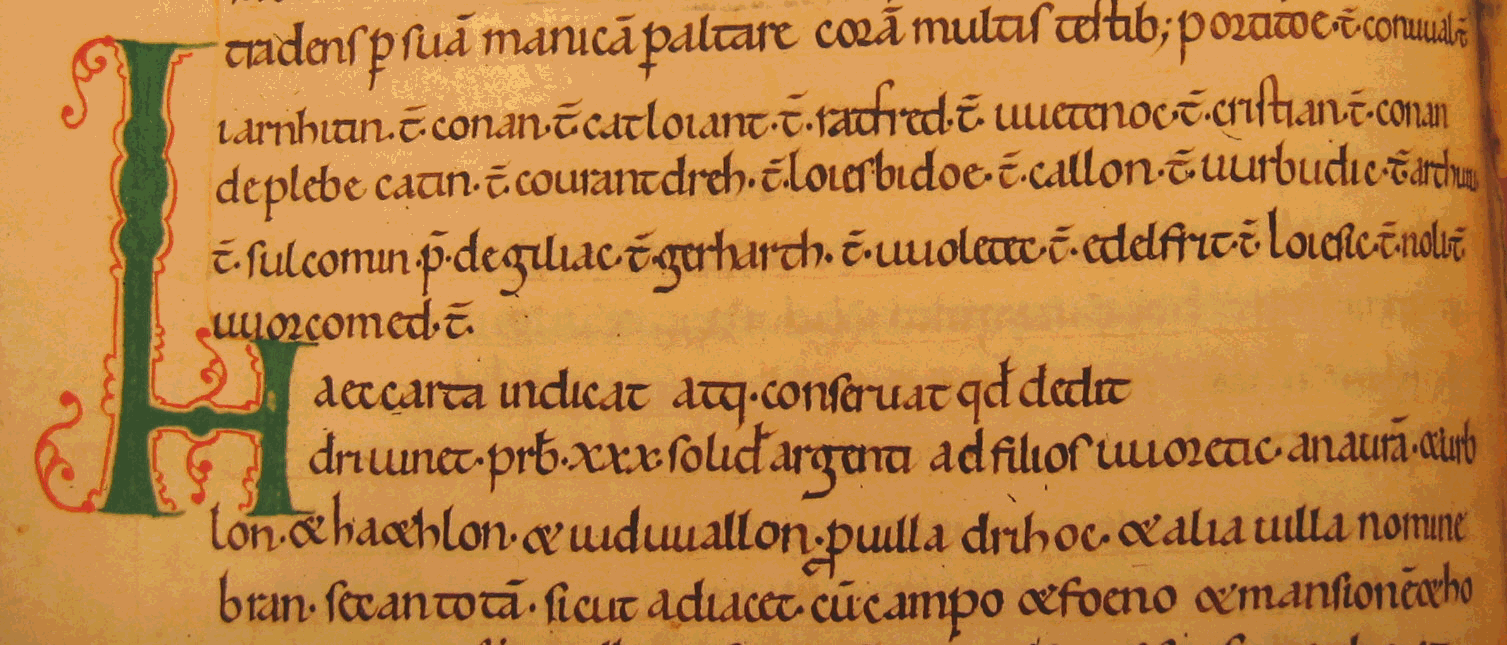 tradens p suā manicā p altare corā multis testib; portitoe · t̄ · conuual · t̄
iarnhitin · t̄ · conan · t̄ catloiant · t̄ · ratfred · t̄ · uuetenoc · t̄ · cristian · t̄ · conan
de plebe catin · t̄ · courantdreh · t̄ · loiesbidoe · t̄ · callon · t̄ · uurbudic · t̄
t̄ · sulcomin p̄ · de giliac · t̄ · gerharth · t̄ · uuoletec · t̄ · edelfrit · t̄ · loiesic · t̄ · noli · t̄
uuorcomed · t̄ ·
Haec carta indicat atq · conseruat qđ dedit
driuuinet · prƀ · xxx · soliđ argenti ad filios uuoretic · anaurā · & iurb
lon · & haethlon · & uiduuallon · p uilla drihoc · & alia uilla nomine
bran · secan totā · sicut adiacet · cū campo & foeno & mansionē & ho